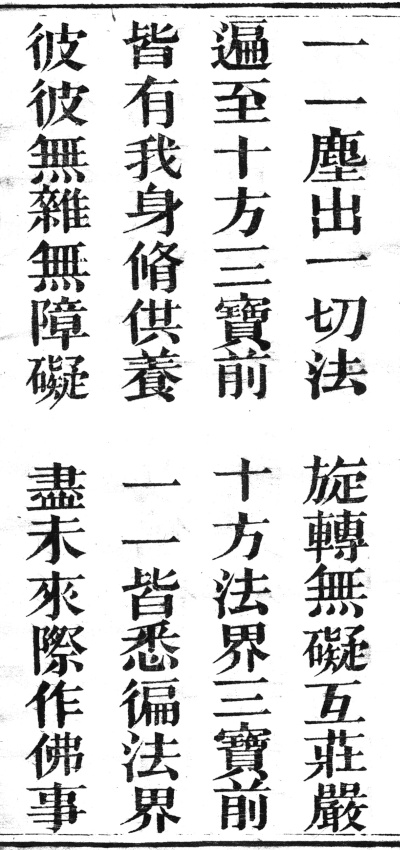 一一塵出一切法　旋轉無礙互莊嚴
遍至十方三寶前　十方法界三寶前
皆有我身脩供養　一一皆悉徧法界
彼彼無雜無障礙　盡未來際作佛事